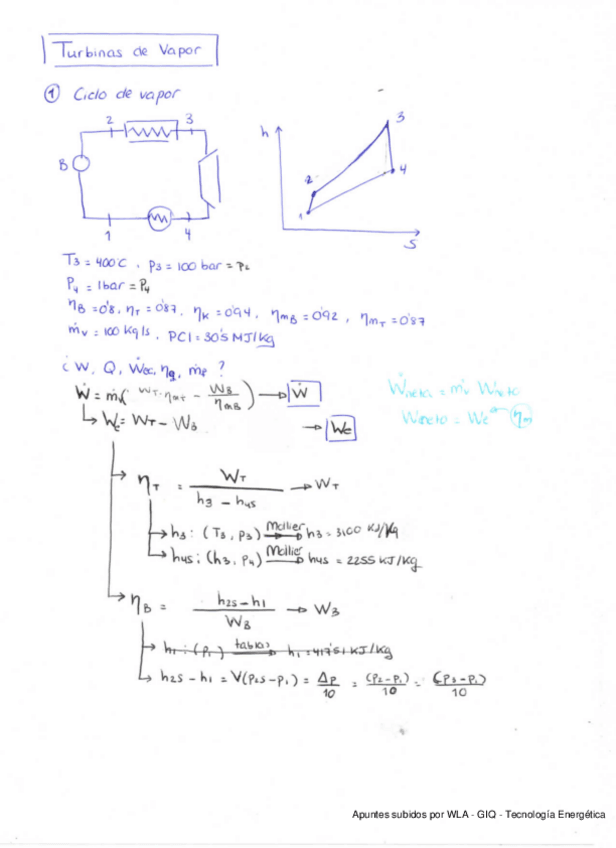 Turbinas de Vapor
① Ciclo de vapor
2 3
B
1 4
h
3
2
4
1
S
T3 = 400C . P3 = 100 bar = P2
P4 = 1bar = P4
ηB = 0'8, ηT = 0'87, ηK = 0'94, ηmB = 0'92, ηmT = 0'87
ṁv = 100 Kg/s, PCI = 30'5 MJ/Kg
¿ W, Q, Ẇec, ηg, ṁf ?
Ẇ = ṁv( WT·ηmT - WB/ηmB ) → Ẇ
Ẇneta = ṁv Wneto
↳ Wc = WT - WB → Wc
Wneto = Wc ηm
ηT = WT / (h3 - h4s) → WT
h3: (T3, P3) Mollier → h3 = 3100 KJ/Kg
h4s: (h3, P4) Mollier → h4s = 2255 KJ/Kg
ηB = (h2s - h1) / WB → WB
h1: (P1) tablas → h1 = 417'51 KJ/Kg
h2s - h1 = V(P2s - P1) = Δp/10 = (P2 - P1)/10 = (P3 - P1)/10
Apuntes subidos por WLA - GIQ - Tecnología Energética